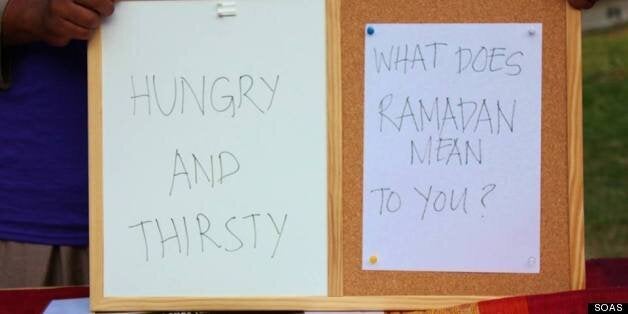 HUNGRY
AND
THIRSTY
WHAT DOES
RAMADAN
MEAN
TO YOU?
SOAS